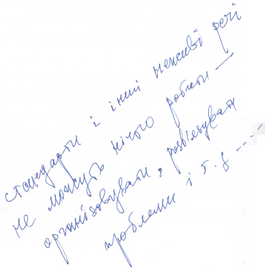 стандарти і інші неживі речі
не можуть нічого робити —
організовувати, розв'язувати
проблеми і т. д ----